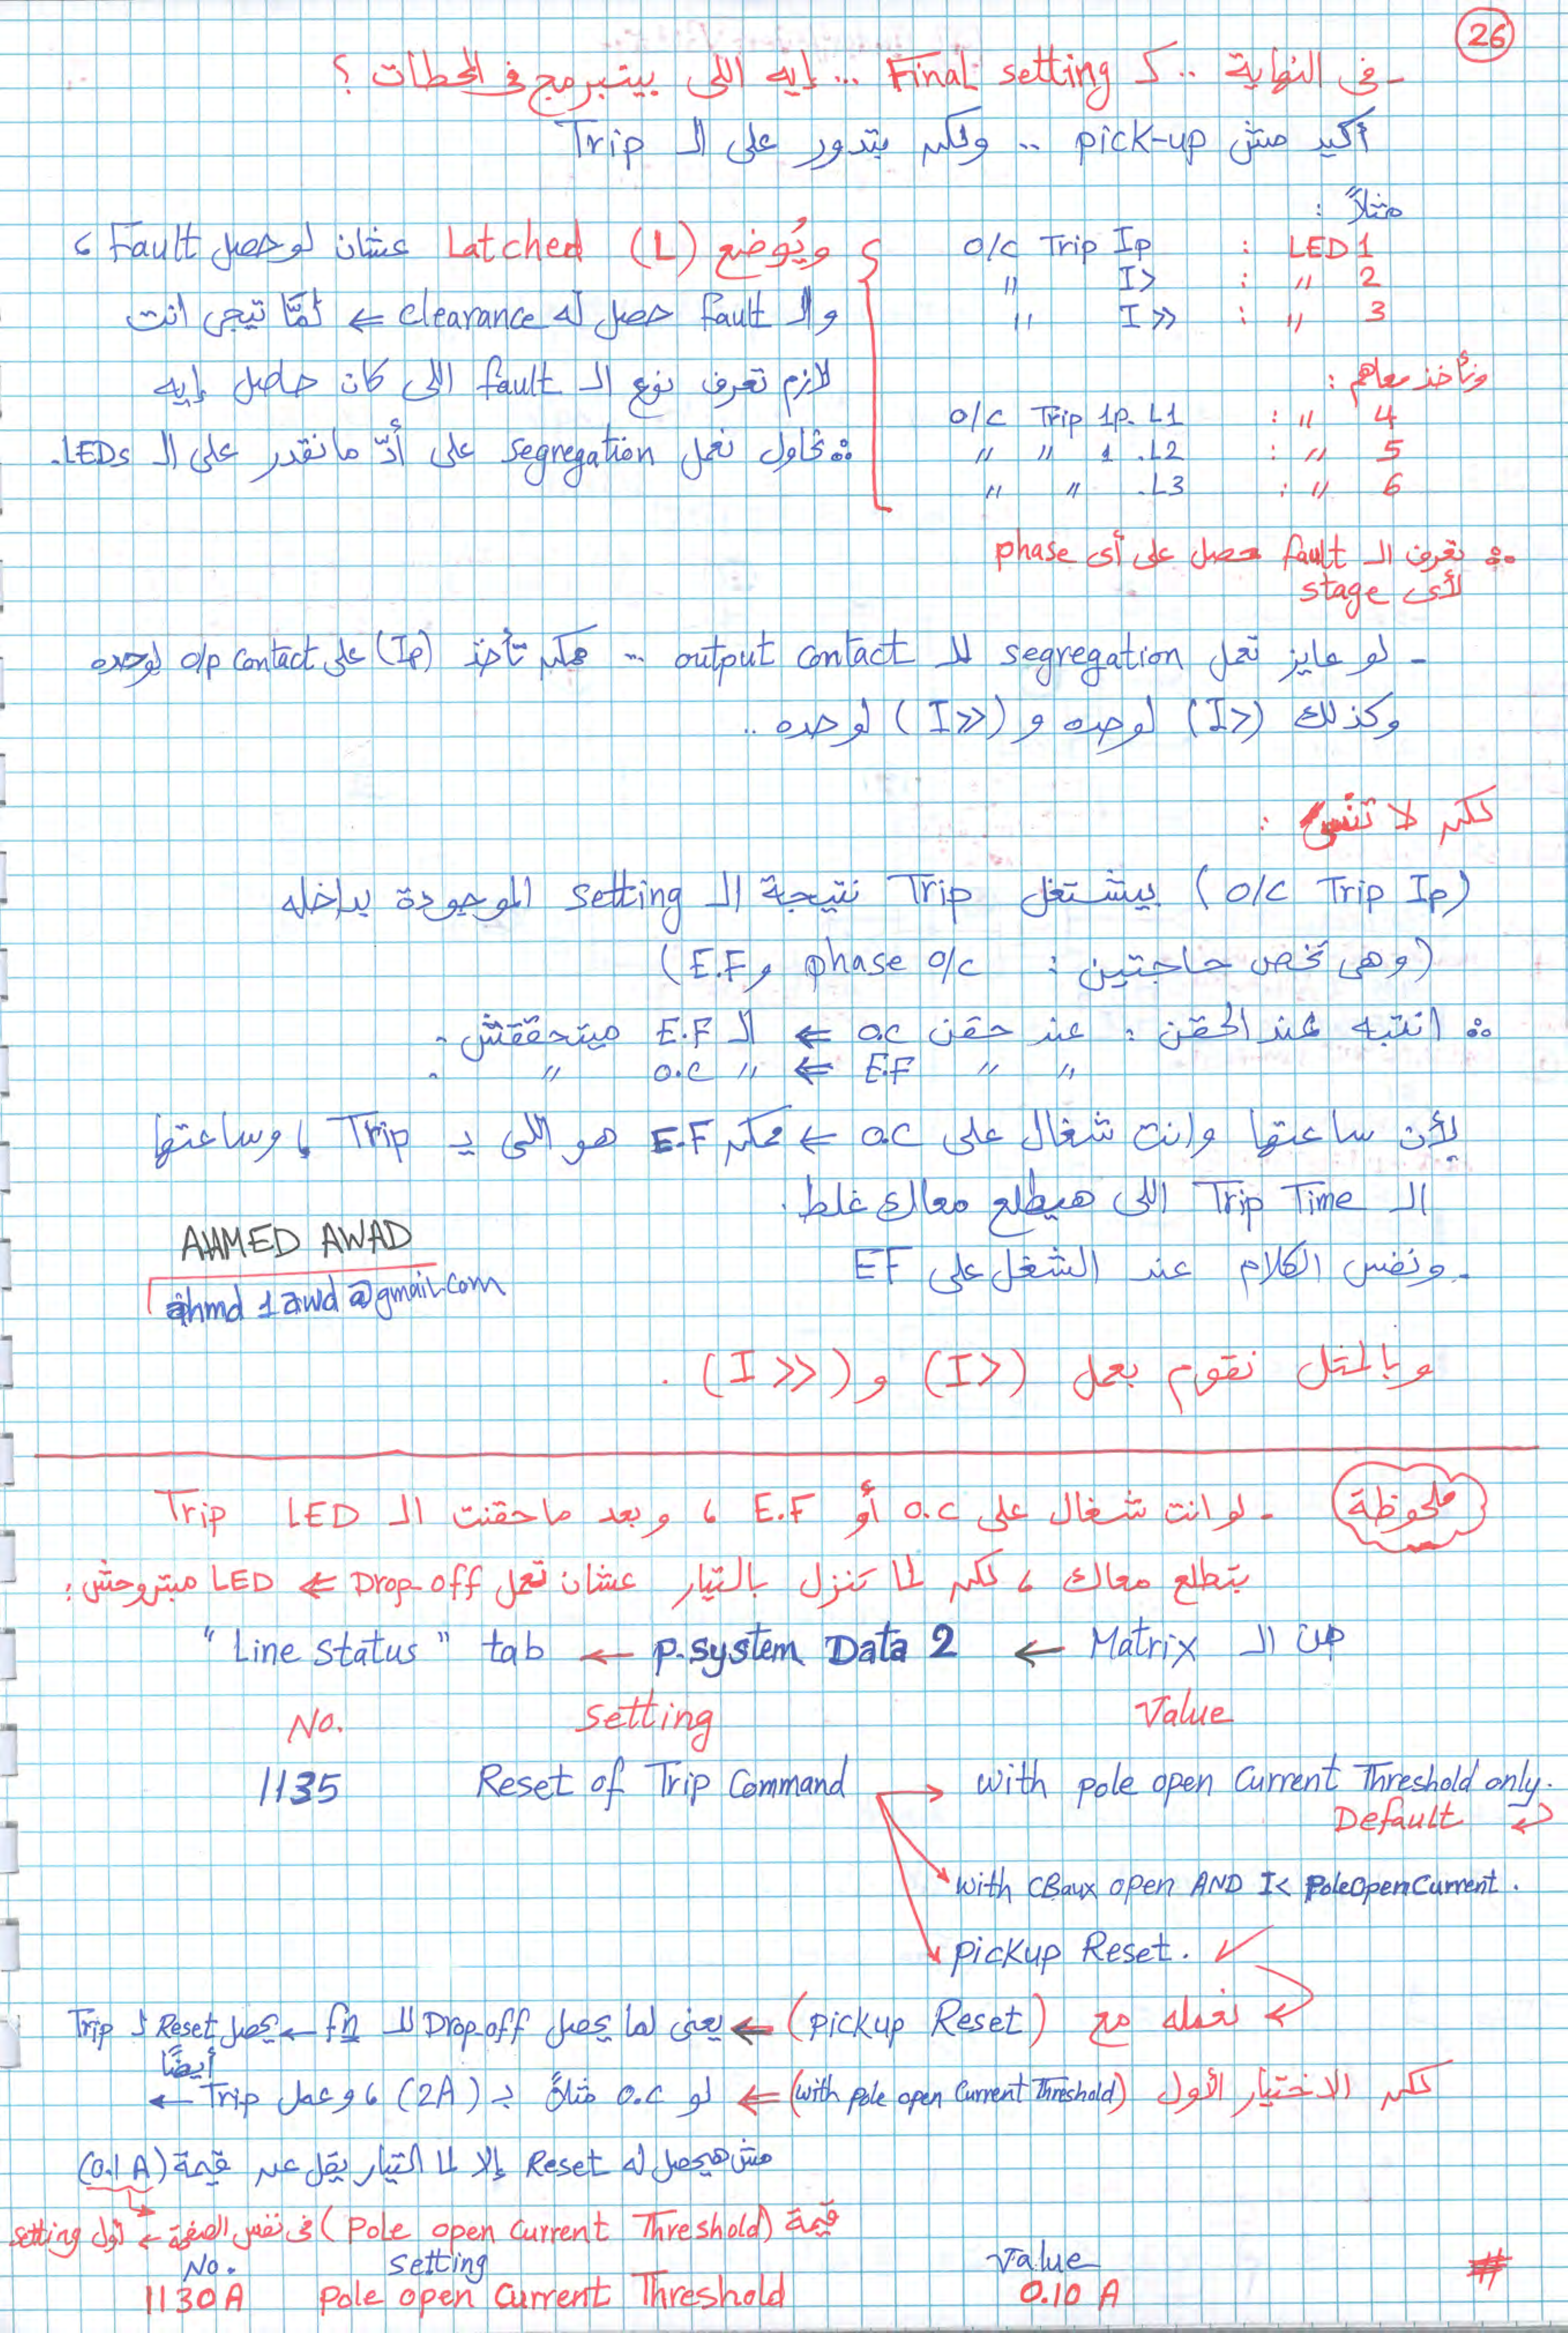 26
- فى النهاية .. كـ Final setting ... إيه اللى بيتبرمج فى المحطات ؟
أكيد مش pick-up .. ولكن بتدور على الـ Trip
مثلاً :
LED 1 : O/C Trip Ip
2 〃 : 〃 I>
3 〃 : 〃 I>>
ونأخذ معاهم :
4 〃 : O/C Trip 1p. L1
5 〃 : 〃 〃 1 .L2
6 〃 : 〃 〃 .L3
ويُوضع Latched (L) عشان لو حصل Fault ،
والـ fault حصل له clearance ← لمَّا تيجى انت
لازم تعرف نوع الـ fault اللى كان حاصل إيه
∴ نحاول نعمل segregation على أدّ ما نقدر على الـ LEDs.
∴ تعرف الـ fault حصل على أى phase
لأى stage
- لو عايز تعمل segregation للـ output contact .. ممكن تأخذ (Ip) على o/p contact لوحده
وكذلك (I>) لوحده و (I>>) لوحده ..
لكن لا تنس :
(O/C Trip Ip) بيشتغل Trip نتيجة الـ setting الموجودة بداخله
(وهى تخص حاجتين : phase o/c و E.F)
∴ انتبه عند الحقن : عند حقن o.c ← الـ E.F ميتحققش .
〃 〃 E.F ← 〃 o.c 〃 .
لأن ساعتها وانت شغال على o.c ← ممكن E.F هو اللى يـ Trip ، وساعتها
الـ Trip Time اللى هيطلع معاك غلط .
- ونفس الكلام عند الشغل على EF
AHMED AWAD
ahmd1awd@gmail.com
وبالمثل نقوم بعمل (I>) و (I>>) .
ملحوظة
- لو انت شغال على o.c أو E.F ، وبعد ما حقنت الـ Trip LED
بتطلع معاك ، لكن لما تنزل بالتيار عشان تعمل Drop-off ← LED مبتروحش :
من الـ Matrix ← P.System Data 2 ← "Line Status" tab
No. Setting Value
1135 Reset of Trip Command → with pole open Current Threshold only.
Default
with CBaux open AND I< PoleOpenCurrent .
Pickup Reset. ✓
نعمله مع (Pickup Reset) ← يعنى لما يحصل Drop-off للـ fn ← يحصل Reset لـ Trip
أيضًا
لكن الاختيار الأول (with pole open Current Threshold) ← لو o.c مثلاً بـ (2A) ، وعمل Trip ←
مش هيحصل له Reset إلا لما التيار يقل عن قيمة (0.1 A)
قيمة (Pole open Current Threshold) فى نفس الصفحة ← أول setting
No. Setting Value
1130A Pole open Current Threshold 0.10 A
#